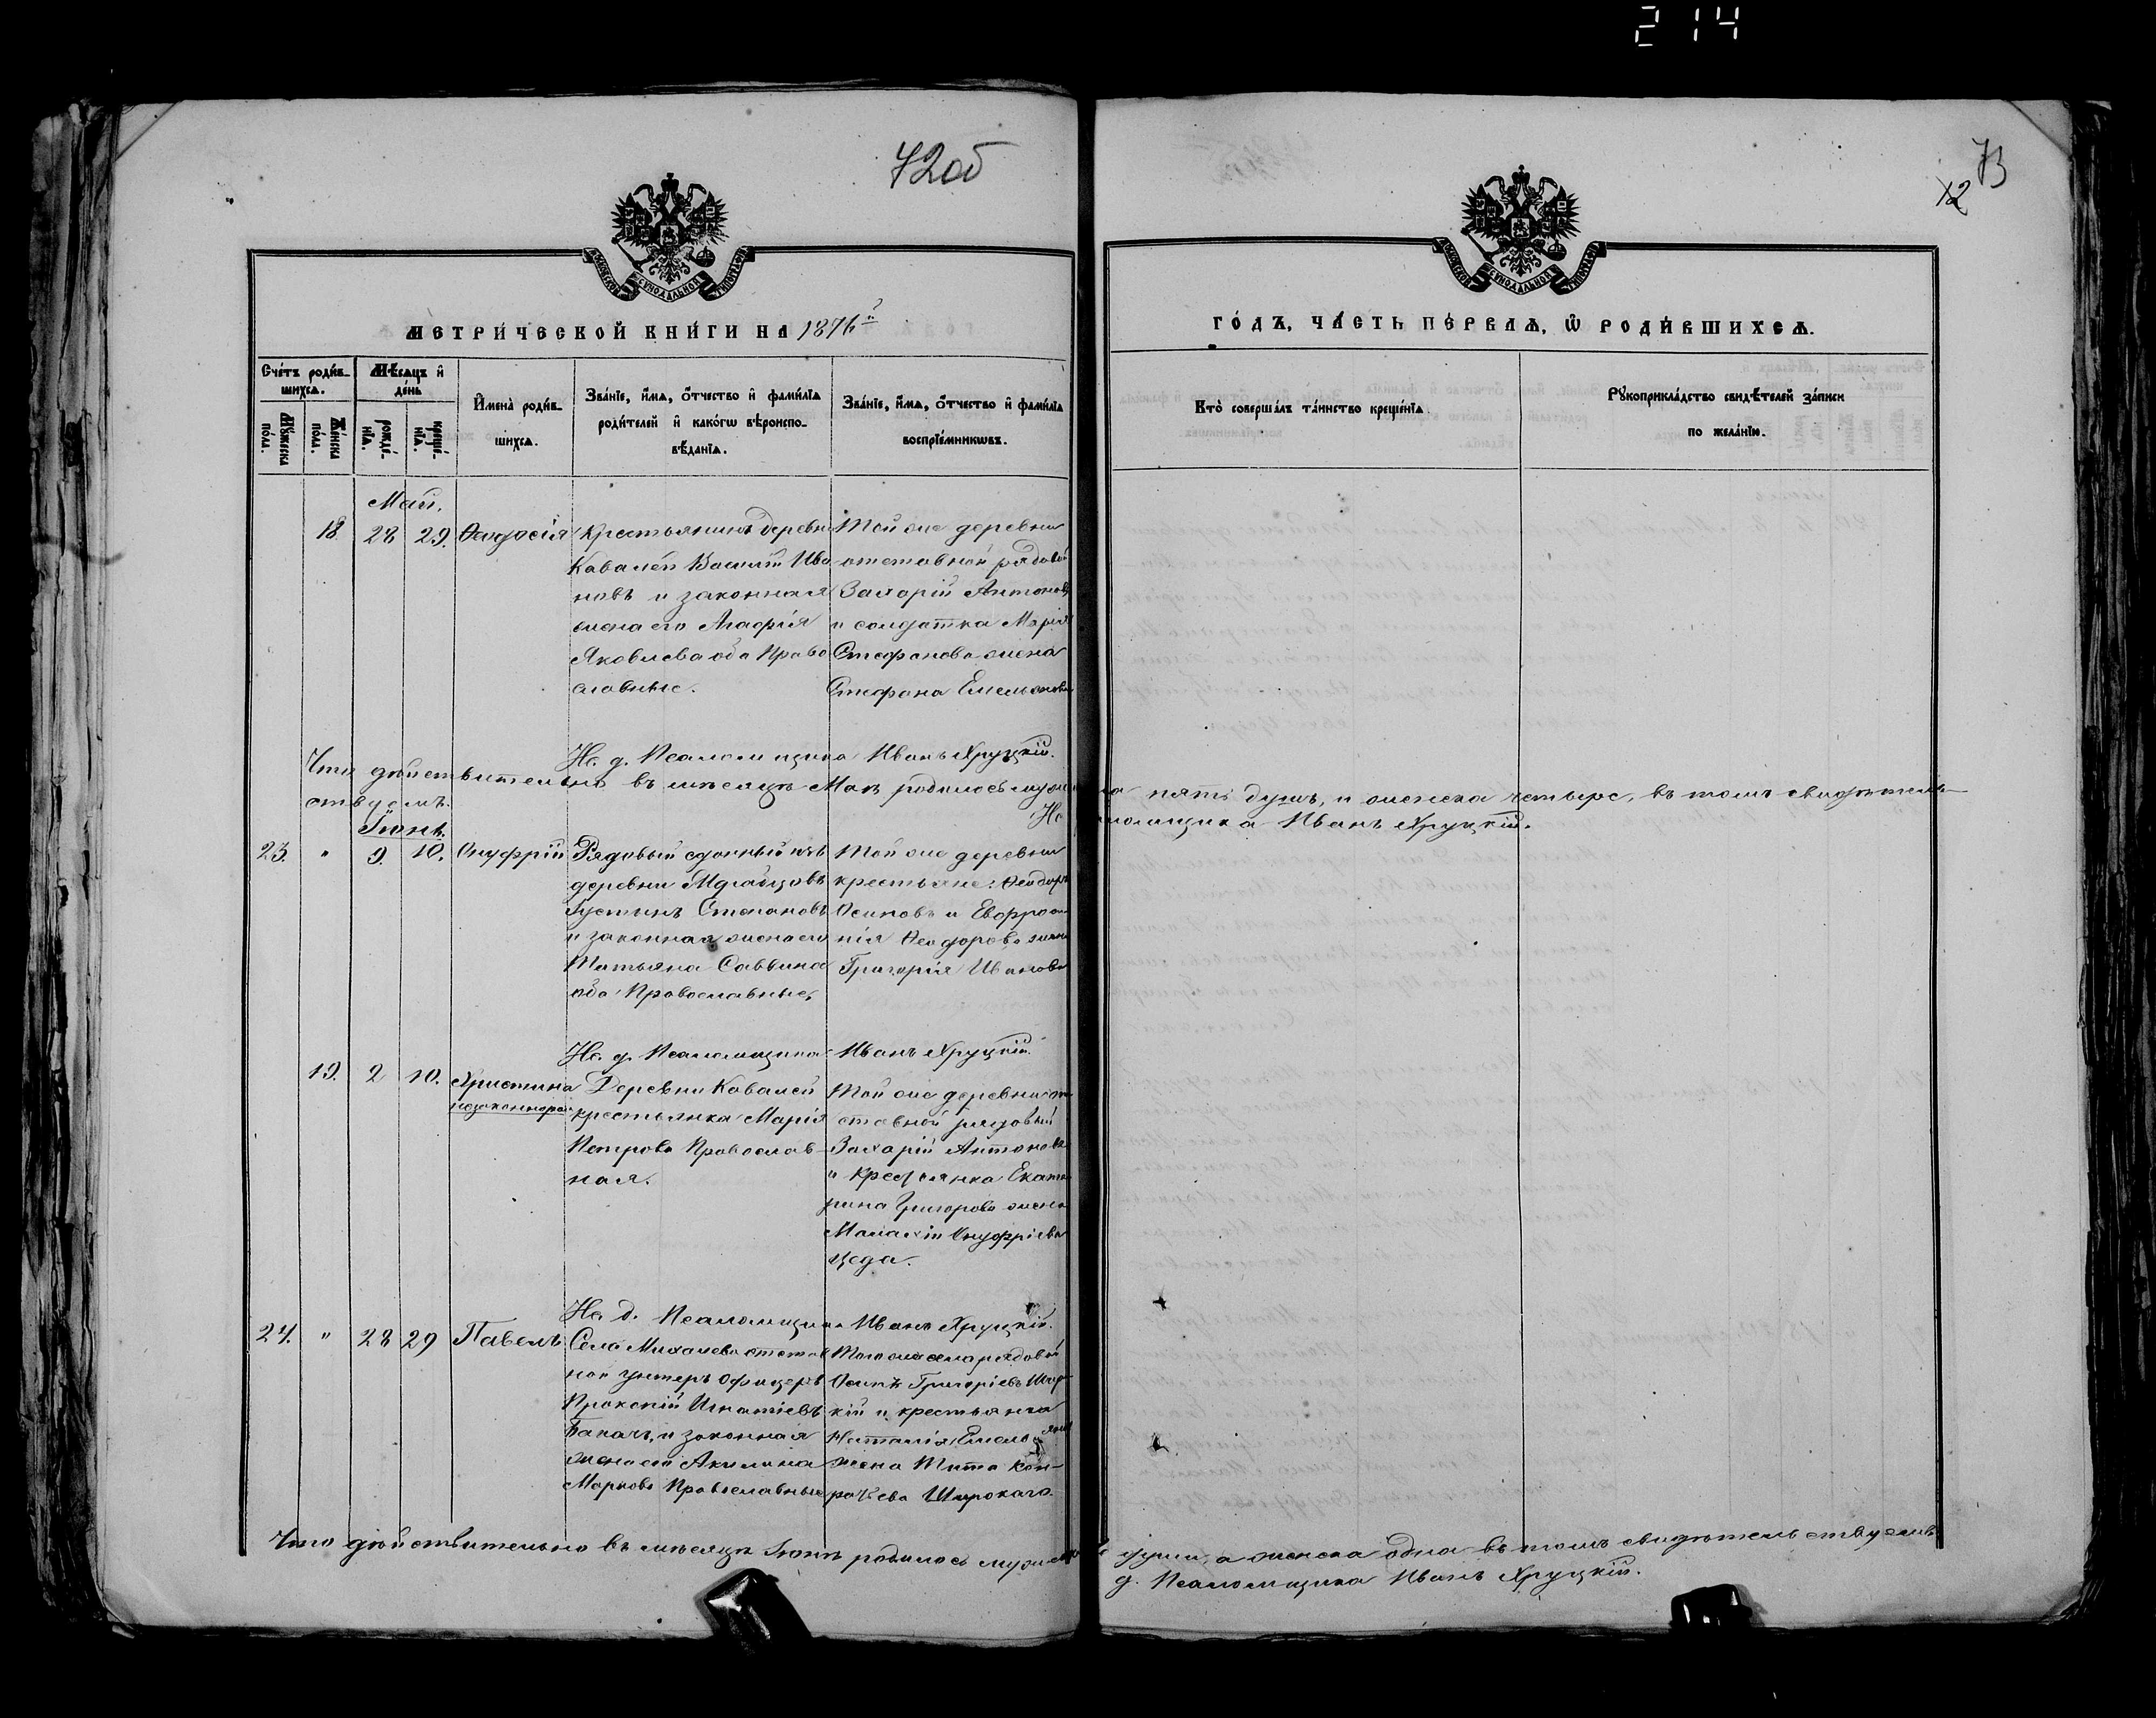 214
72об
73
72
МОСКОВСКОЙ СУНОДАЛЬНОЙ ТИПОГРАФІИ
МОСКОВСКОЙ СУНОДАЛЬНОЙ ТИПОГРАФІИ
МЕТРИ́ЧЕСКОЙ КНИ́ГИ НА 1876й
ГО́ДЪ, ЧА́СТЬ ПЕ́РВАѦ, Ѿ РОДИ́ВШИХСѦ.
Сче́тъ роди́в-
шихсѧ.
Мꙋ́жеска по́ла.
Же́нска по́ла.
Мѣ́сѧцъ и҆
де́нь
рожде́-
нїѧ.
креще́-
нїѧ.
И҆мена̀ роди́в-
шихсѧ.
Зва́нїе, и҆́мѧ, ѻ҆́тчество и҆ фами́лїѧ
роди́телей и҆ како́гѡ вѣроиспо-
вѣ́данїѧ.
Зва́нїе, и҆́мѧ, ѻ҆́тчество и҆ фами́лїѧ
воспрїе́мникѡвъ.
Кто̀ соверша́лъ та́инство креще́нїѧ.
Рꙋкоприкла́дство свидѣ́телей за́писи
по жела́нїю.
Май.
18. 28 29. Ѳеодосія
Крестьянинъ деревни
Ковалей Василій Ива
новъ и законная
жена его Агафія
Яковлева оба Право
славные.
Той же деревни
отставной рядовой
Захарій Антоновъ
и солдатка Марія
Стефанова жена
Стефана Емельянова
И. д. Псаломщика Иванъ Хруцкій.
Что дѣйствительно въ мѣсяцѣ Маѣ родилось мужеска пять душъ, и женска четыре, въ томъ свидѣтель-
ствуемъ. И. д. Псаломщика Иванъ Хруцкій.
Іюнь.
23. " 9. 10. Онуфрій
Рядовый сданный изъ
деревни
Іустинъ Степановъ
и законная жена его
Татьяна Саввина
оба Православные,
Той же деревни
крестьяне: Ѳеодоръ
Осиповъ и Евфроси
нія Ѳеодорова жена
Григорія Иванова
И. д. Псаломщика Иванъ Хруцкій.
19. 2 10. Христина
незаконнорож
Деревни Ковалей
крестьянка Марія
Петрова Православ-
ная.
Той же деревни от
ставной рядовый
Захарій Антоновъ
и крестьянка Екате
рина Григорова жена
Малахіи Онуфріева
Цеда.
И. д. Псаломщика Иванъ Хруцкій.
24. " 28 29 Павелъ
Села Михалева отстав
ной унтеръ офицеръ
Прокопій Игнатіевъ
и законная
жена его Акилина
Маркова Православные
Того же села рядовой
Осипъ Григоріевъ Широ-
кій и крестьянка
Наталія Емельянова
жена Тита Кон-
ратьева Широкаго.
Что дѣйствительно въ мѣсяцѣ Іюнѣ родилось мужеска души, а женска одна въ томъ свидѣтельствуемъ
д. Псаломщика Иванъ Хруцкій.